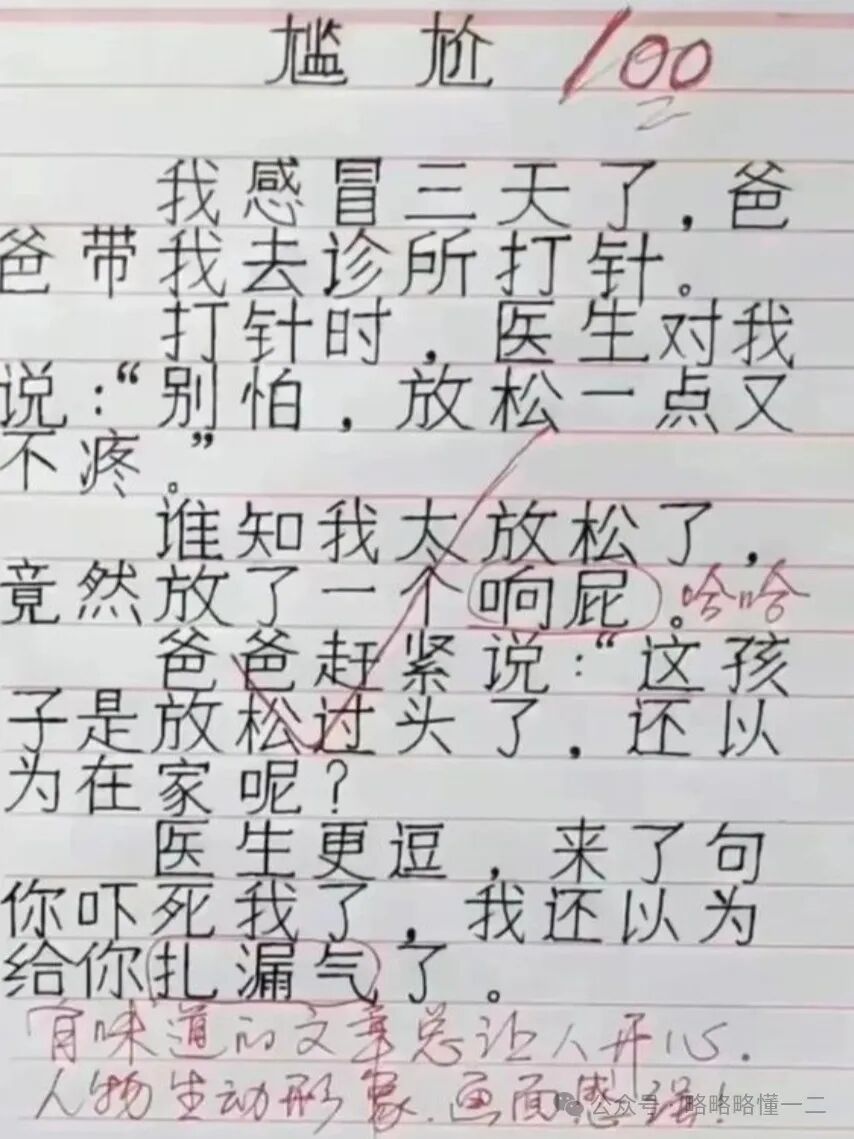 尴尬 100
我感冒三天了，爸
爸带我去诊所打针。
打针时，医生对我
说：“别怕，放松一点又
不疼。”
谁知我太放松了，
竟然放了一个响屁。哈哈
爸爸赶紧说：“这孩
子是放松过头了，还以
为在家呢？
医生更逗，来了句
你吓死我了，我还以为
给你扎漏气了。
有味道的文章总让人开心.
人物生动形象.画面感强！
公众号 略略略懂一二